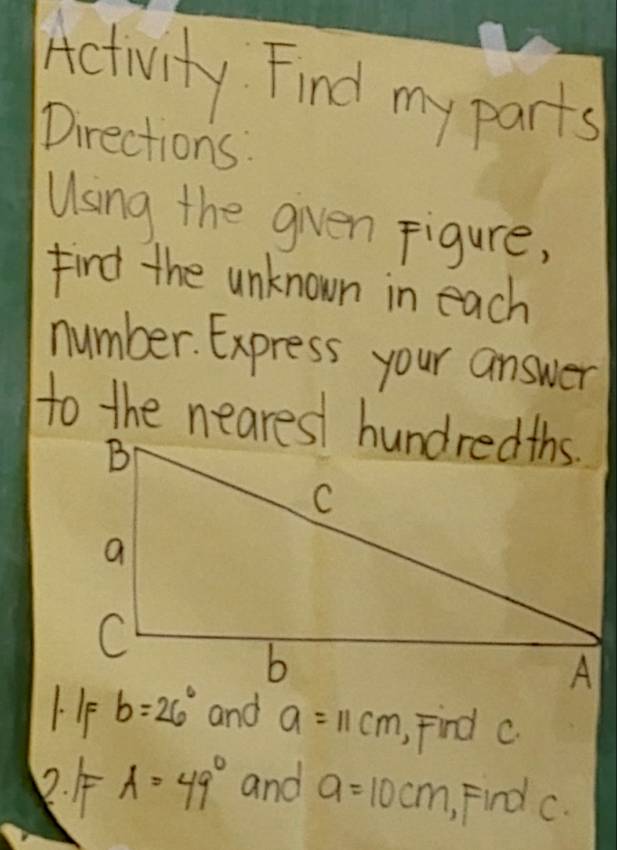 Activity: Find my parts
Directions:
Using the given Figure,
Find the unknown in each
number. Express your answer
to the nearest hundredths.
B
c
a
C
b
A
1. IF b=26° and a = 11 cm, Find c.
2. IF A = 49° and a = 10cm, Find c.